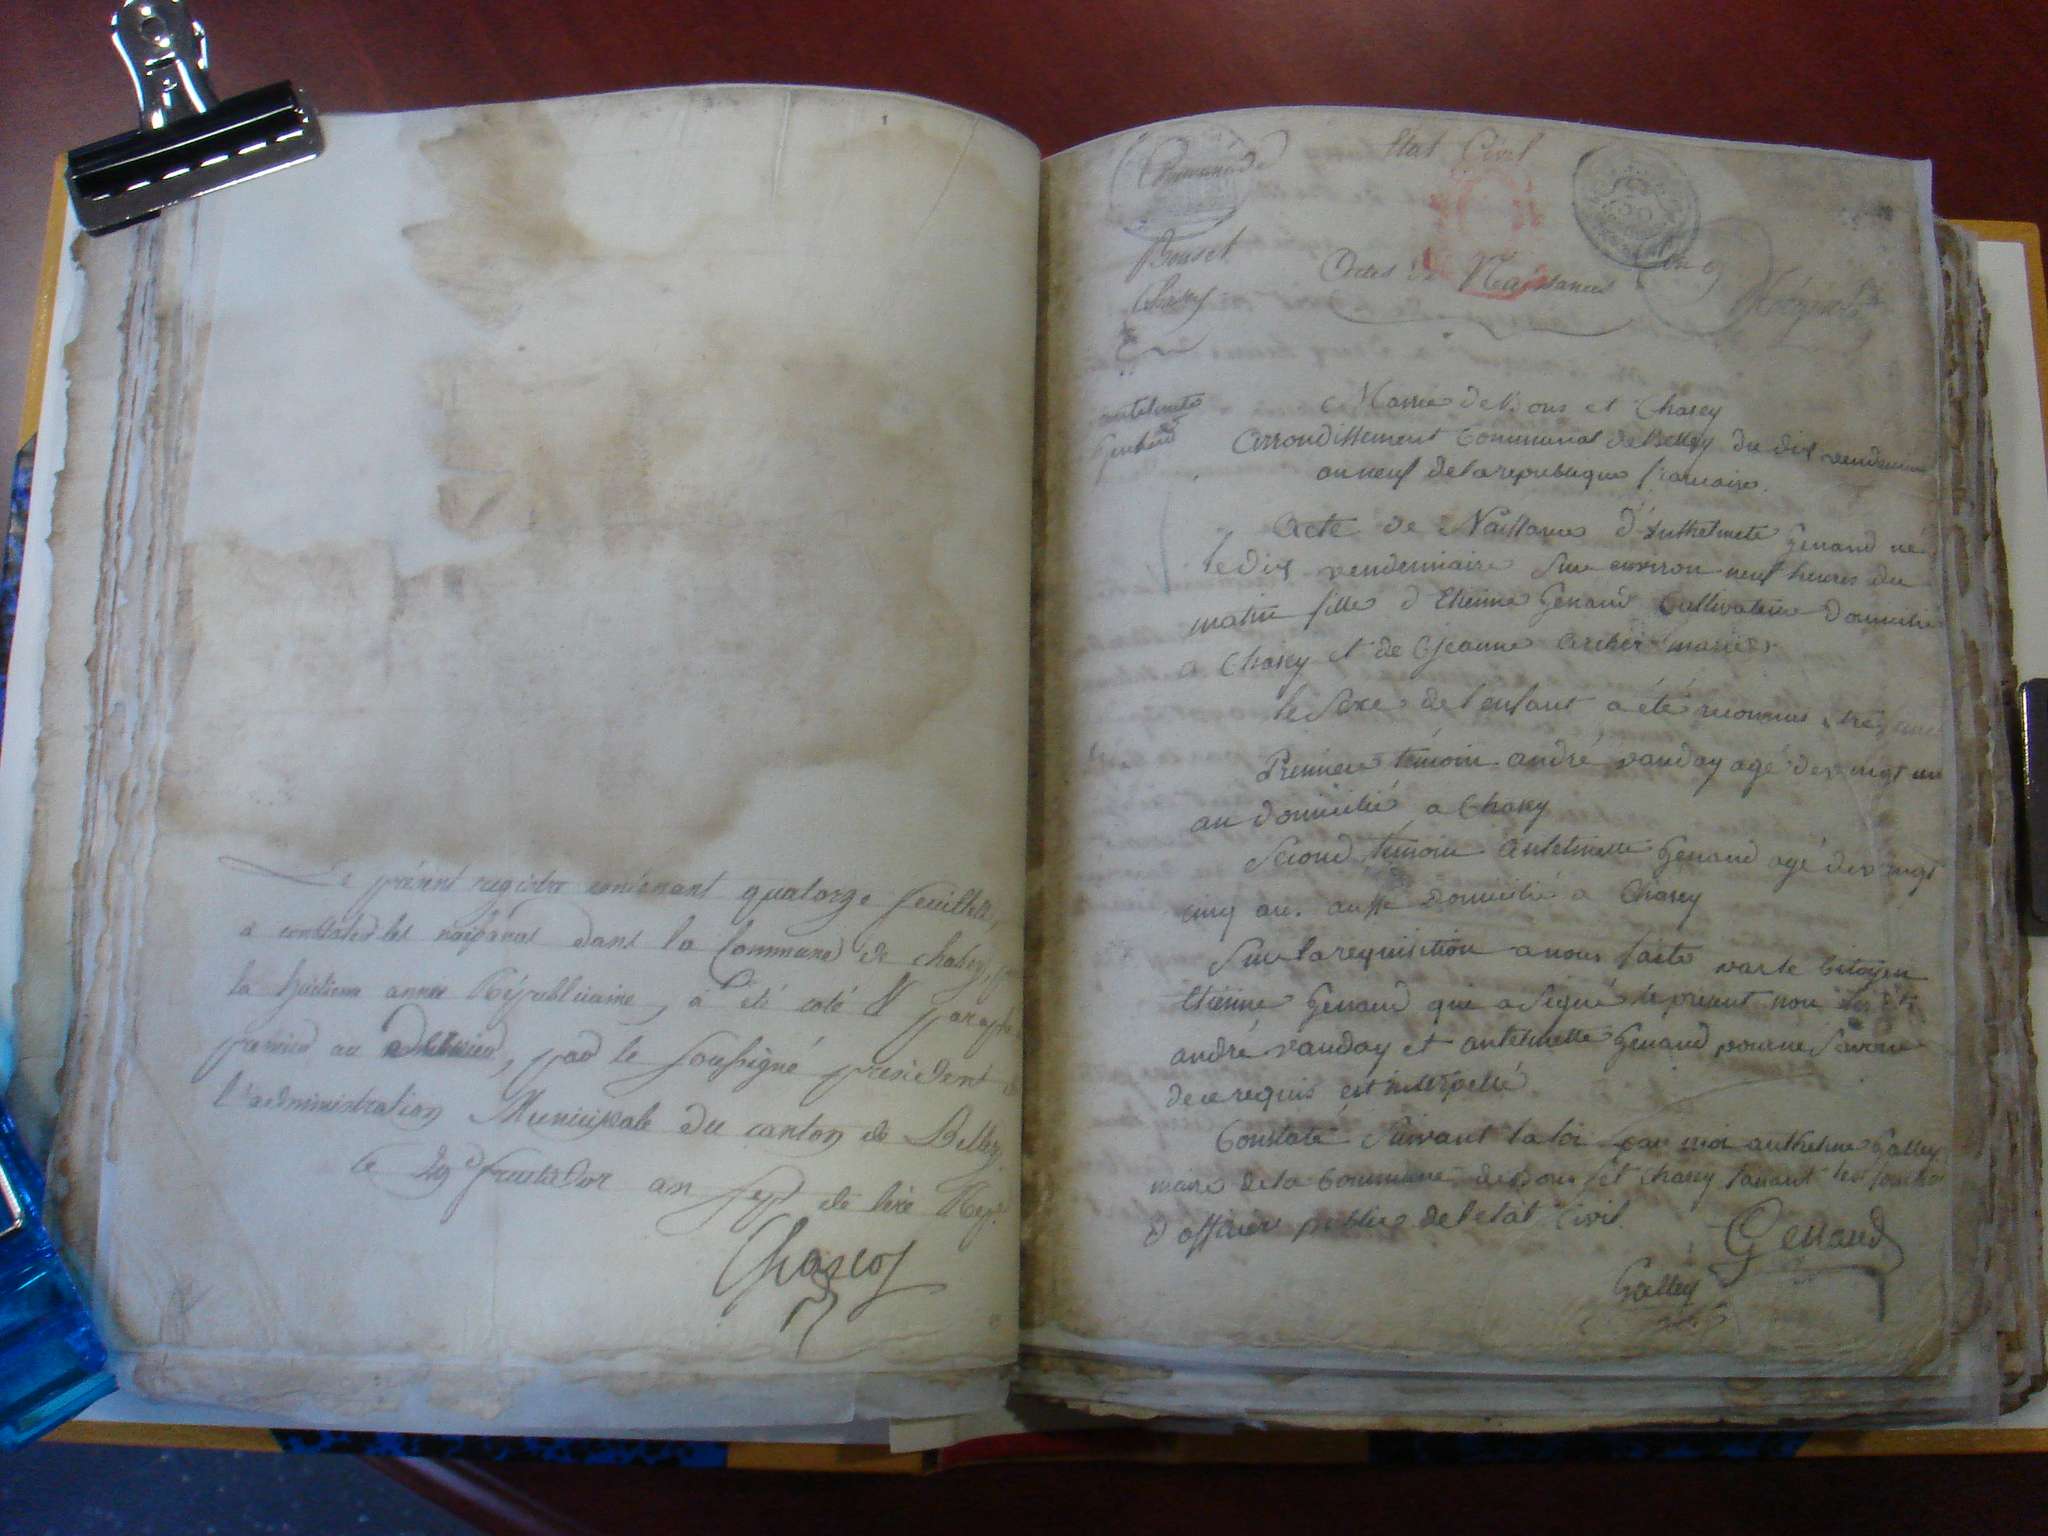 1
Le présent registre contenant quatorze feuillets,
a constater les naissances dans la Commune de chasey,
la huitieme année Républicaine, a été coté & paraphé
premier au dernier, par le soussigné président
l'administration Municipale du canton de Belley
le 29e fructidor an sept de l'ère Rep.
Etat Civil
Commune de
Bons et
Chasey
Actes de Naissances
Mairie de Bons et Chasey
Arrondissement Communal de Belley du dix vendemiaire
an neuf de la republique francaise.
antelmete
Genand
Acte de Naissance d'Anthelmete Genand né
le dix vendemiaire sur environ neuf heures du
matin fille d'Etienne Genand Cultivateur domicilié
a Chasey et de Jeanne mariés
le sexe de l'enfant a été reconnu être
Premiere témoin andré vauday agé de vingt un
an domicilié a Chasey
Second témoin Antelmette Genand agé de vingt
cinq an. aussi domicilié a Chasey
Sur la requisition a nous faite par le Citoyen
Etienne Genand qui a signé le présent non
andré vauday et antelmette Genand pour ne savoir
de ce requis est interpellé
Constaté suivant la loi par moi anthelme Galley
maire de la Commune de Bons et Chasey faisant les fonction
d'officier public de l'etat Civil.
Genand
Galley